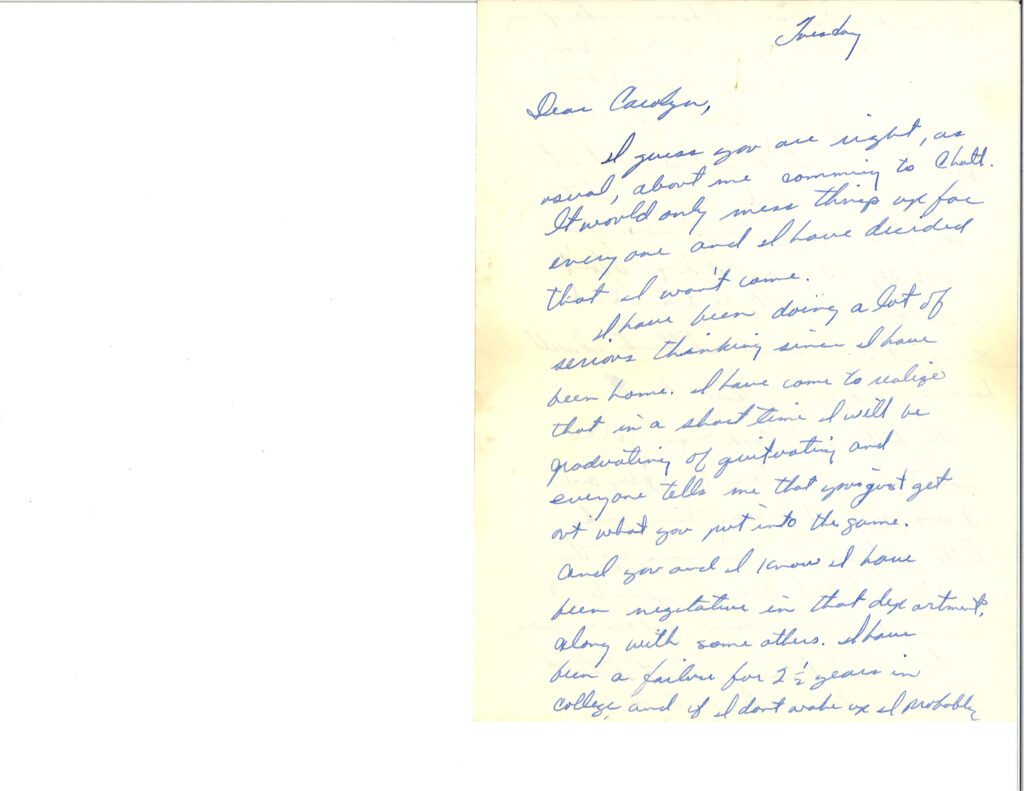 Tuesday
Dear Carolyn,
I guess you are right, as
usual, about me comming to Chatt.
It would only mess things up for
every one and I have decided
that I won't come.
I have been doing a lot of
serious thinking since I have
been home. I have come to realize
that in a short time I will be
graduating of quituating and
everyone tells me that you just get
out what you put into the game.
And you and I know I have
been negitative in that department,
along with some others. I have
been a failure for 2 ½ years in
college, and if I dont wake up I probably